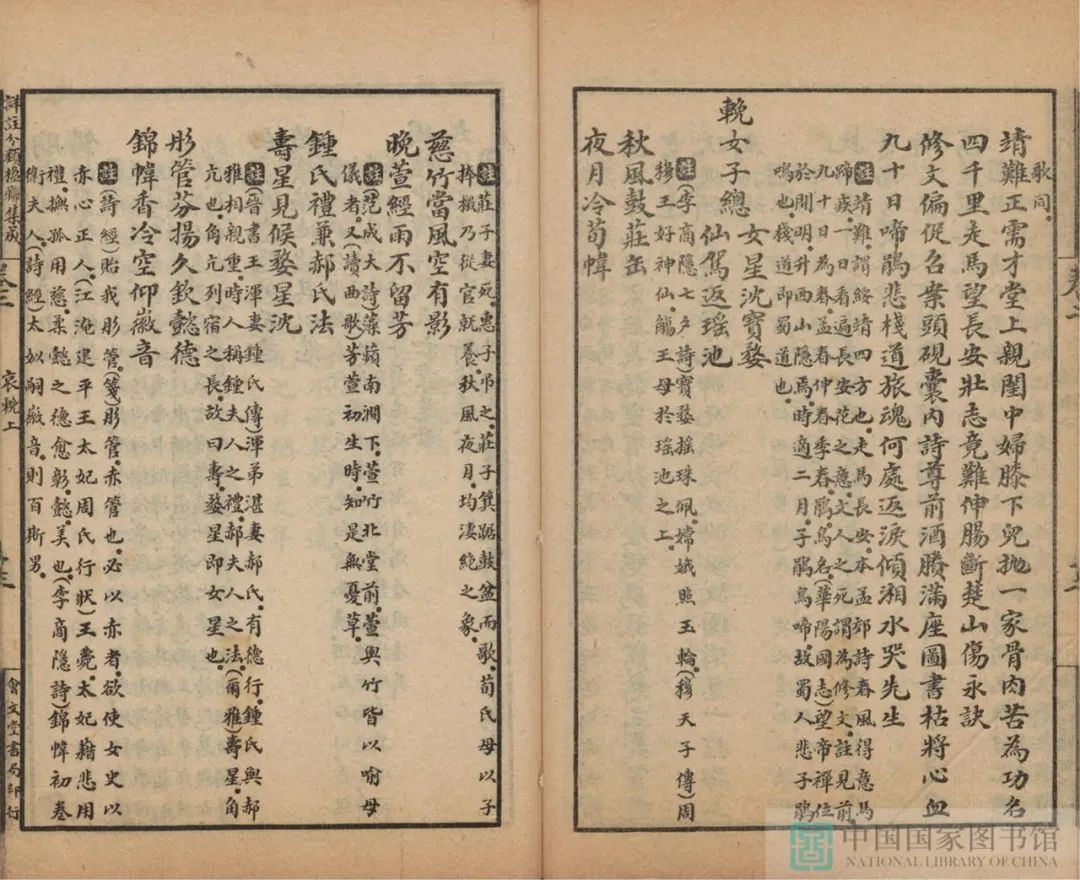 歌同。
靖難正需才堂上親閨中婦膝下兒拋一家骨肉苦為功名
四千里走馬望長安壯志竟難伸腸斷楚山傷永訣
修文偏促召案頭硯囊內詩尊前酒賸滿座圖書枯將心血
九十日啼鵑悲棧道旅魂何處返淚傾湘水哭先生
註靖難。謂綏靖四方也。走馬長安。本孟郊詩春風得意馬
蹄疾。一日看遍長安花之意。文人之死。謂為修文。註見前。
九十日為春。孟春仲春季春。鵑。鳥名。(華陽國志)望帝禪位
於開明。升西山隱焉。時適二月。子鵑鳥啼。故蜀人悲子鵑
鳴也。棧道即蜀道也。
輓女子總
女星沈寶婺
仙駕返瑤池
註(李商隱七夕詩)寶婺搖珠佩。嫦娥照玉輪。(穆天子傳)周
穆王好神仙。觴王母於瑤池之上。
秋風鼓莊缶
夜月冷荀幃
註莊子妻死。惠子弔之。莊子箕踞鼓盆而歌。荀氏母以子
捧檄乃從官就養。秋風夜月。均淒絕之象。
慈竹當風空有影
晚萱經雨不留芳
註范成大詩藻蘋南澗下。萱竹北堂前。萱與竹皆以喻母
儀者。又(讀曲歌)芳萱初生時。知是無憂草。
鍾氏禮兼郝氏法
壽星見候婺星沈
註(晉書)王渾妻鍾氏。傳渾弟湛妻郝氏。有德行。鍾氏與郝
雅相親重。時人稱鍾夫人之禮。郝夫人之法。(爾雅)壽星。角
亢也。角亢列宿之長。故曰壽。婺星即女星也。
彤管芬揚久欽懿德
錦幃香冷空仰徽音
註(詩經)貽我彤管。箋彤管。赤管也。必以赤者。欲使女史以
赤心正人。(江淹建平王太妃周氏行狀)王薨。太妃藉悲用
禮。撫孤用慈。柔懿之德愈彰。懿。美也。(李商隱詩)錦幃初卷
衛夫人(詩經)太姒嗣徽音。則百斯男。
詳註分類楹聯集成
哀輓上
會文堂書局印行
中国国家图书馆
NATIONAL LIBRARY OF CHINA